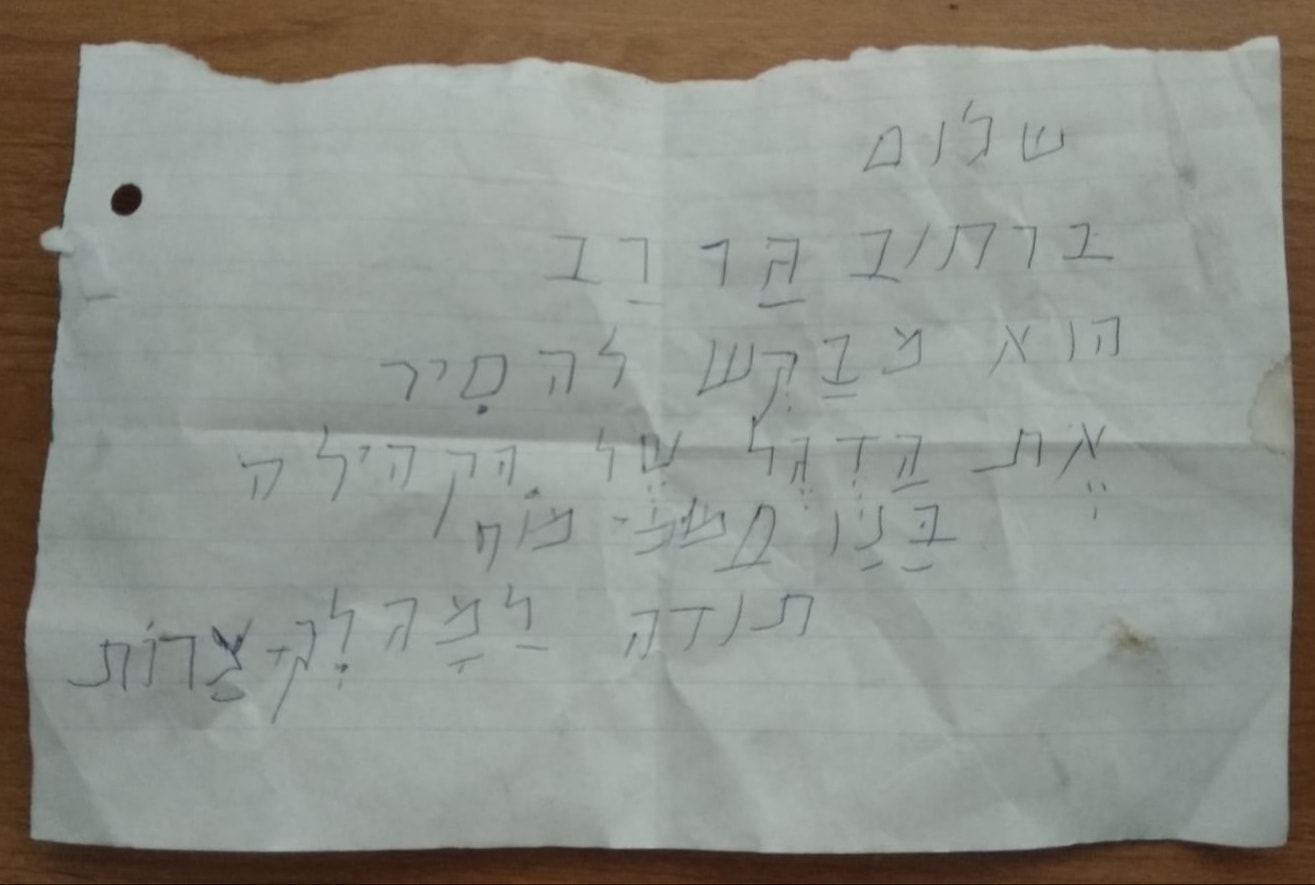 שלום
ברחוב גַּר רַב
הוא מבַקִש להסִיר
אֶת הַדֶגֶל שֶל הקהילה
בַּנַין
תודה לַמַהלִקַ-צָרוֹת